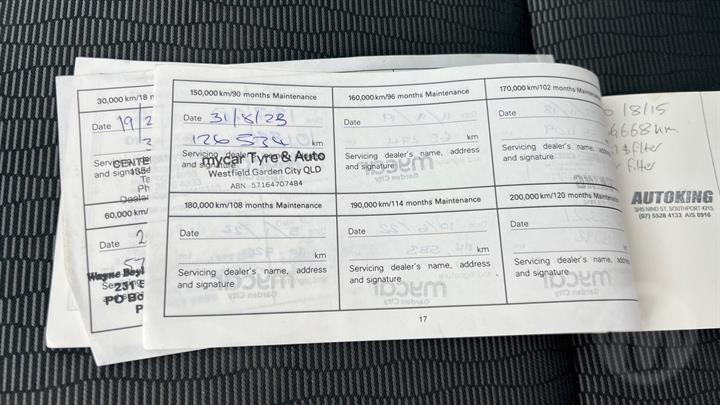 30,000 km/18 m
Date 19/2
Servi
and signat
SENTE
Te
Ph
60,000 km/
Date 2
57
Wayne Boyl
231 E
PO Bo
P
150,000 km/90 months Maintenance
Date 31/8/23
126534 km
Servicing dealer's name, address
and signature
mycar Tyre & Auto
Westfield Garden City QLD
ABN : 57164707484
160,000 km/96 months Maintenance
Date
km
Servicing dealer's name, address
and signature
170,000 km/102 months Mainten
Date
Servicing dealer's name,
and signature
180,000 km/108 months Maintenance
Date
km
Servicing dealer's name, address
and signature
190,000 km/114 months Maintenance
Date
km
Servicing dealer's name, address
and signature
200,000 km/120 months Maintena
Date
Servicing dealer's name, a
and signature
17
/8/15
6668 km
filter
filter
AUTOKING
ST, SOUTHPORT 4215
(07) 5528 4133 AIS 0916